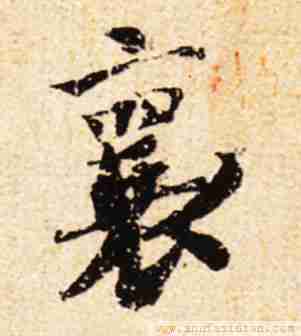 襄
www.shufazidian.com